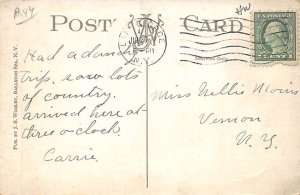 POST CARD
Had a dandy
trip, saw lots
of country.
arrived here at
three o'clock.
Carrie.
Miss Nellie Morris
Vernon
N.Y.
PUB. BY J. S. WOOLEY, BALLSTON SPA, N.Y.
N.Y.